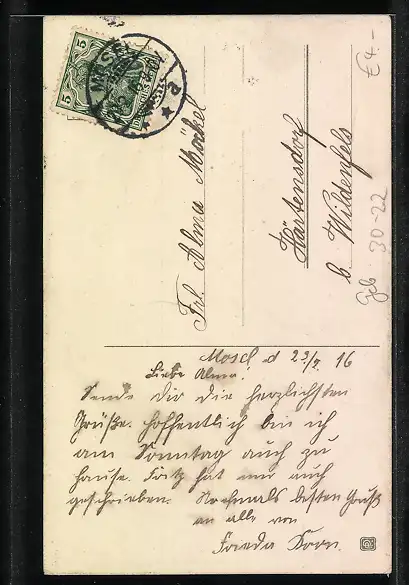 5
5
Frl. Alma Möckel
Härtensdorf
b. Wildenfels
Mosel d 23/2 16
Liebe Alma!
Sende dir die herzlichsten
Grüße. Hoffentlich bin ich
am Sonntag auch zu
hause. Fritz hat mir auch
geschrieben. Nochmals besten Gruß
an alle von
Frieda
30-22
€4.-